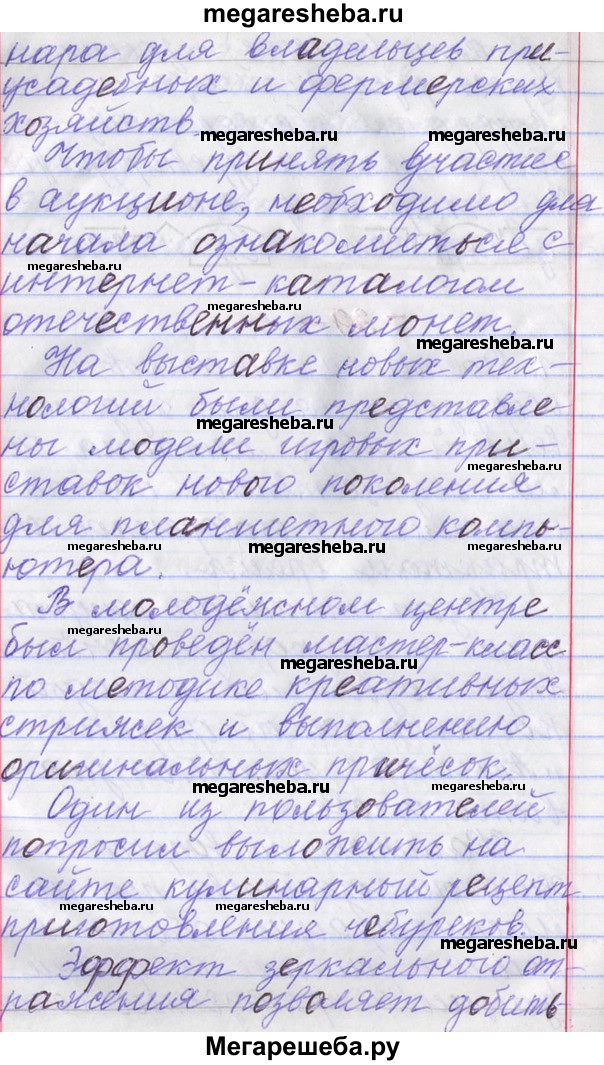 megaresheba.ru
нара для владельцев при-
усадебных и фермерских
хозяйств
megaresheba.ru
megaresheba.ru
Чтобы принять участие
в аукционе, необходимо для
начала ознакомиться с
megaresheba.ru
интернет-каталогом
megaresheba.ru
отечественных монет.
megaresheba.ru
На выставке новых тех-
нологий были представле-
ны модели игровых при-
megaresheba.ru
ставок нового поколения
для планшетного компь-
megaresheba.ru
megaresheba.ru
ютера.
В молодёжном центре
megaresheba.ru
был проведён мастер-класс
megaresheba.ru
по методике креативных
стрижек и выполнению
оригинальных причёсок
megaresheba.ru
Один из пользователей
попросил выложить на
сайте кулинарный рецепт
megaresheba.ru
megaresheba.ru
приготовления чебуреков.
megaresheba.ru
Эффект зеркального от-
ражения позволяет добить-
Мегарешеба.ру